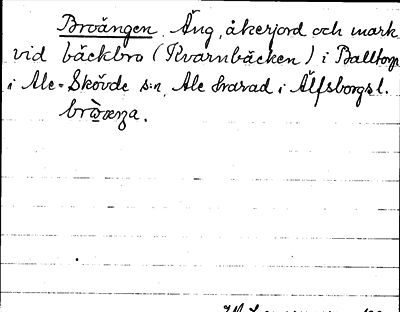 Broängen. Äng, åkerjord och mark
vid bäckbro (Kvarnbäcken) i Balltorp
i Ale-Skövde s:n, Ale härad i Älfsborgs l.